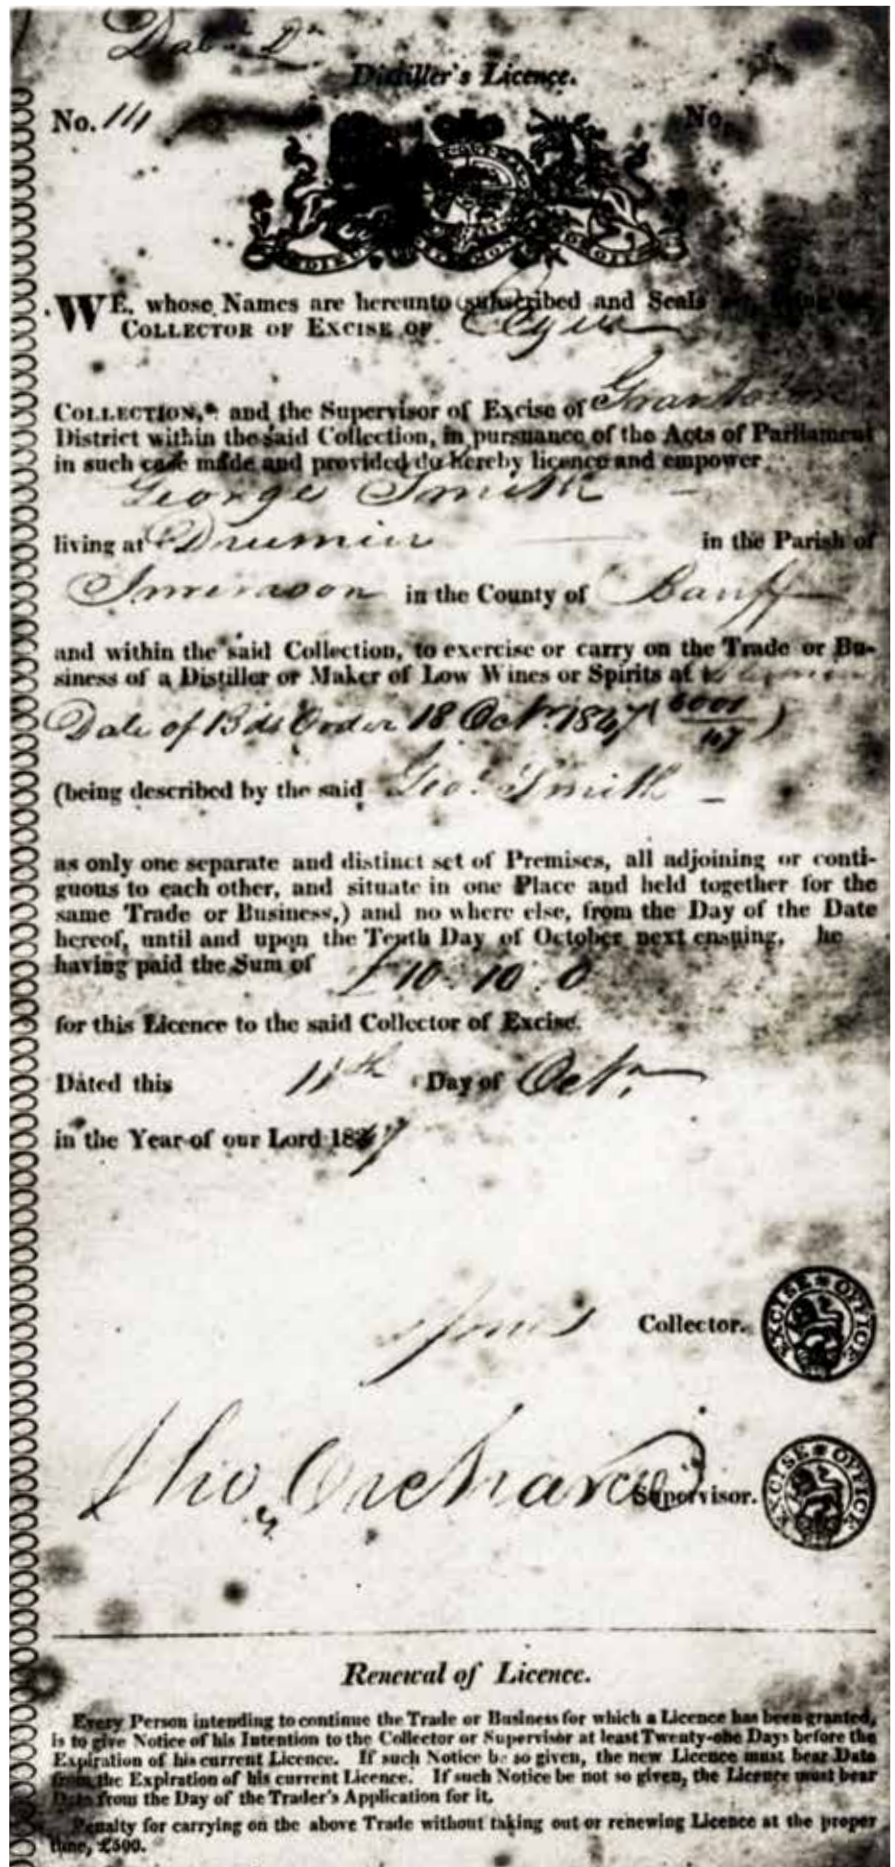 Distiller's Licence.
No. 111 No.
WE, whose Names are hereunto subscribed and Seals set, being the
COLLECTOR OF EXCISE OF Elgin
COLLECTION,* and the Supervisor of Excise of Grantown
District within the said Collection, in pursuance of the Acts of Parliament
in such case made and provided do hereby licence and empower
George Smith
living at Drumin in the Parish of
in the County of Banff
and within the said Collection, to exercise or carry on the Trade or Bu-
siness of a Distiller or Maker of Low Wines or Spirits at
Date of Bds Order 18 Octr. 1847
(being described by the said Geo. Smith
as only one separate and distinct set of Premises, all adjoining or conti-
guous to each other, and situate in one Place and held together for the
same Trade or Business,) and no where else, from the Day of the Date
hereof, until and upon the Tenth Day of October next ensuing, he
having paid the Sum of £10 . 10 . 0
for this Licence to the said Collector of Excise.
Dated this 11th Day of Octr.
in the Year of our Lord 1847
Collector.
EXCISE OFFICE
Thos Orchard Supervisor.
EXCISE OFFICE
Renewal of Licence.
Every Person intending to continue the Trade or Business for which a Licence has been granted,
is to give Notice of his Intention to the Collector or Supervisor at least Twenty-one Days before the
Expiration of his current Licence. If such Notice be so given, the new Licence must bear Date
from the Expiration of his current Licence. If such Notice be not so given, the Licence must bear
Date from the Day of the Trader's Application for it.
Penalty for carrying on the above Trade without taking out or renewing Licence at the proper
time, £500.